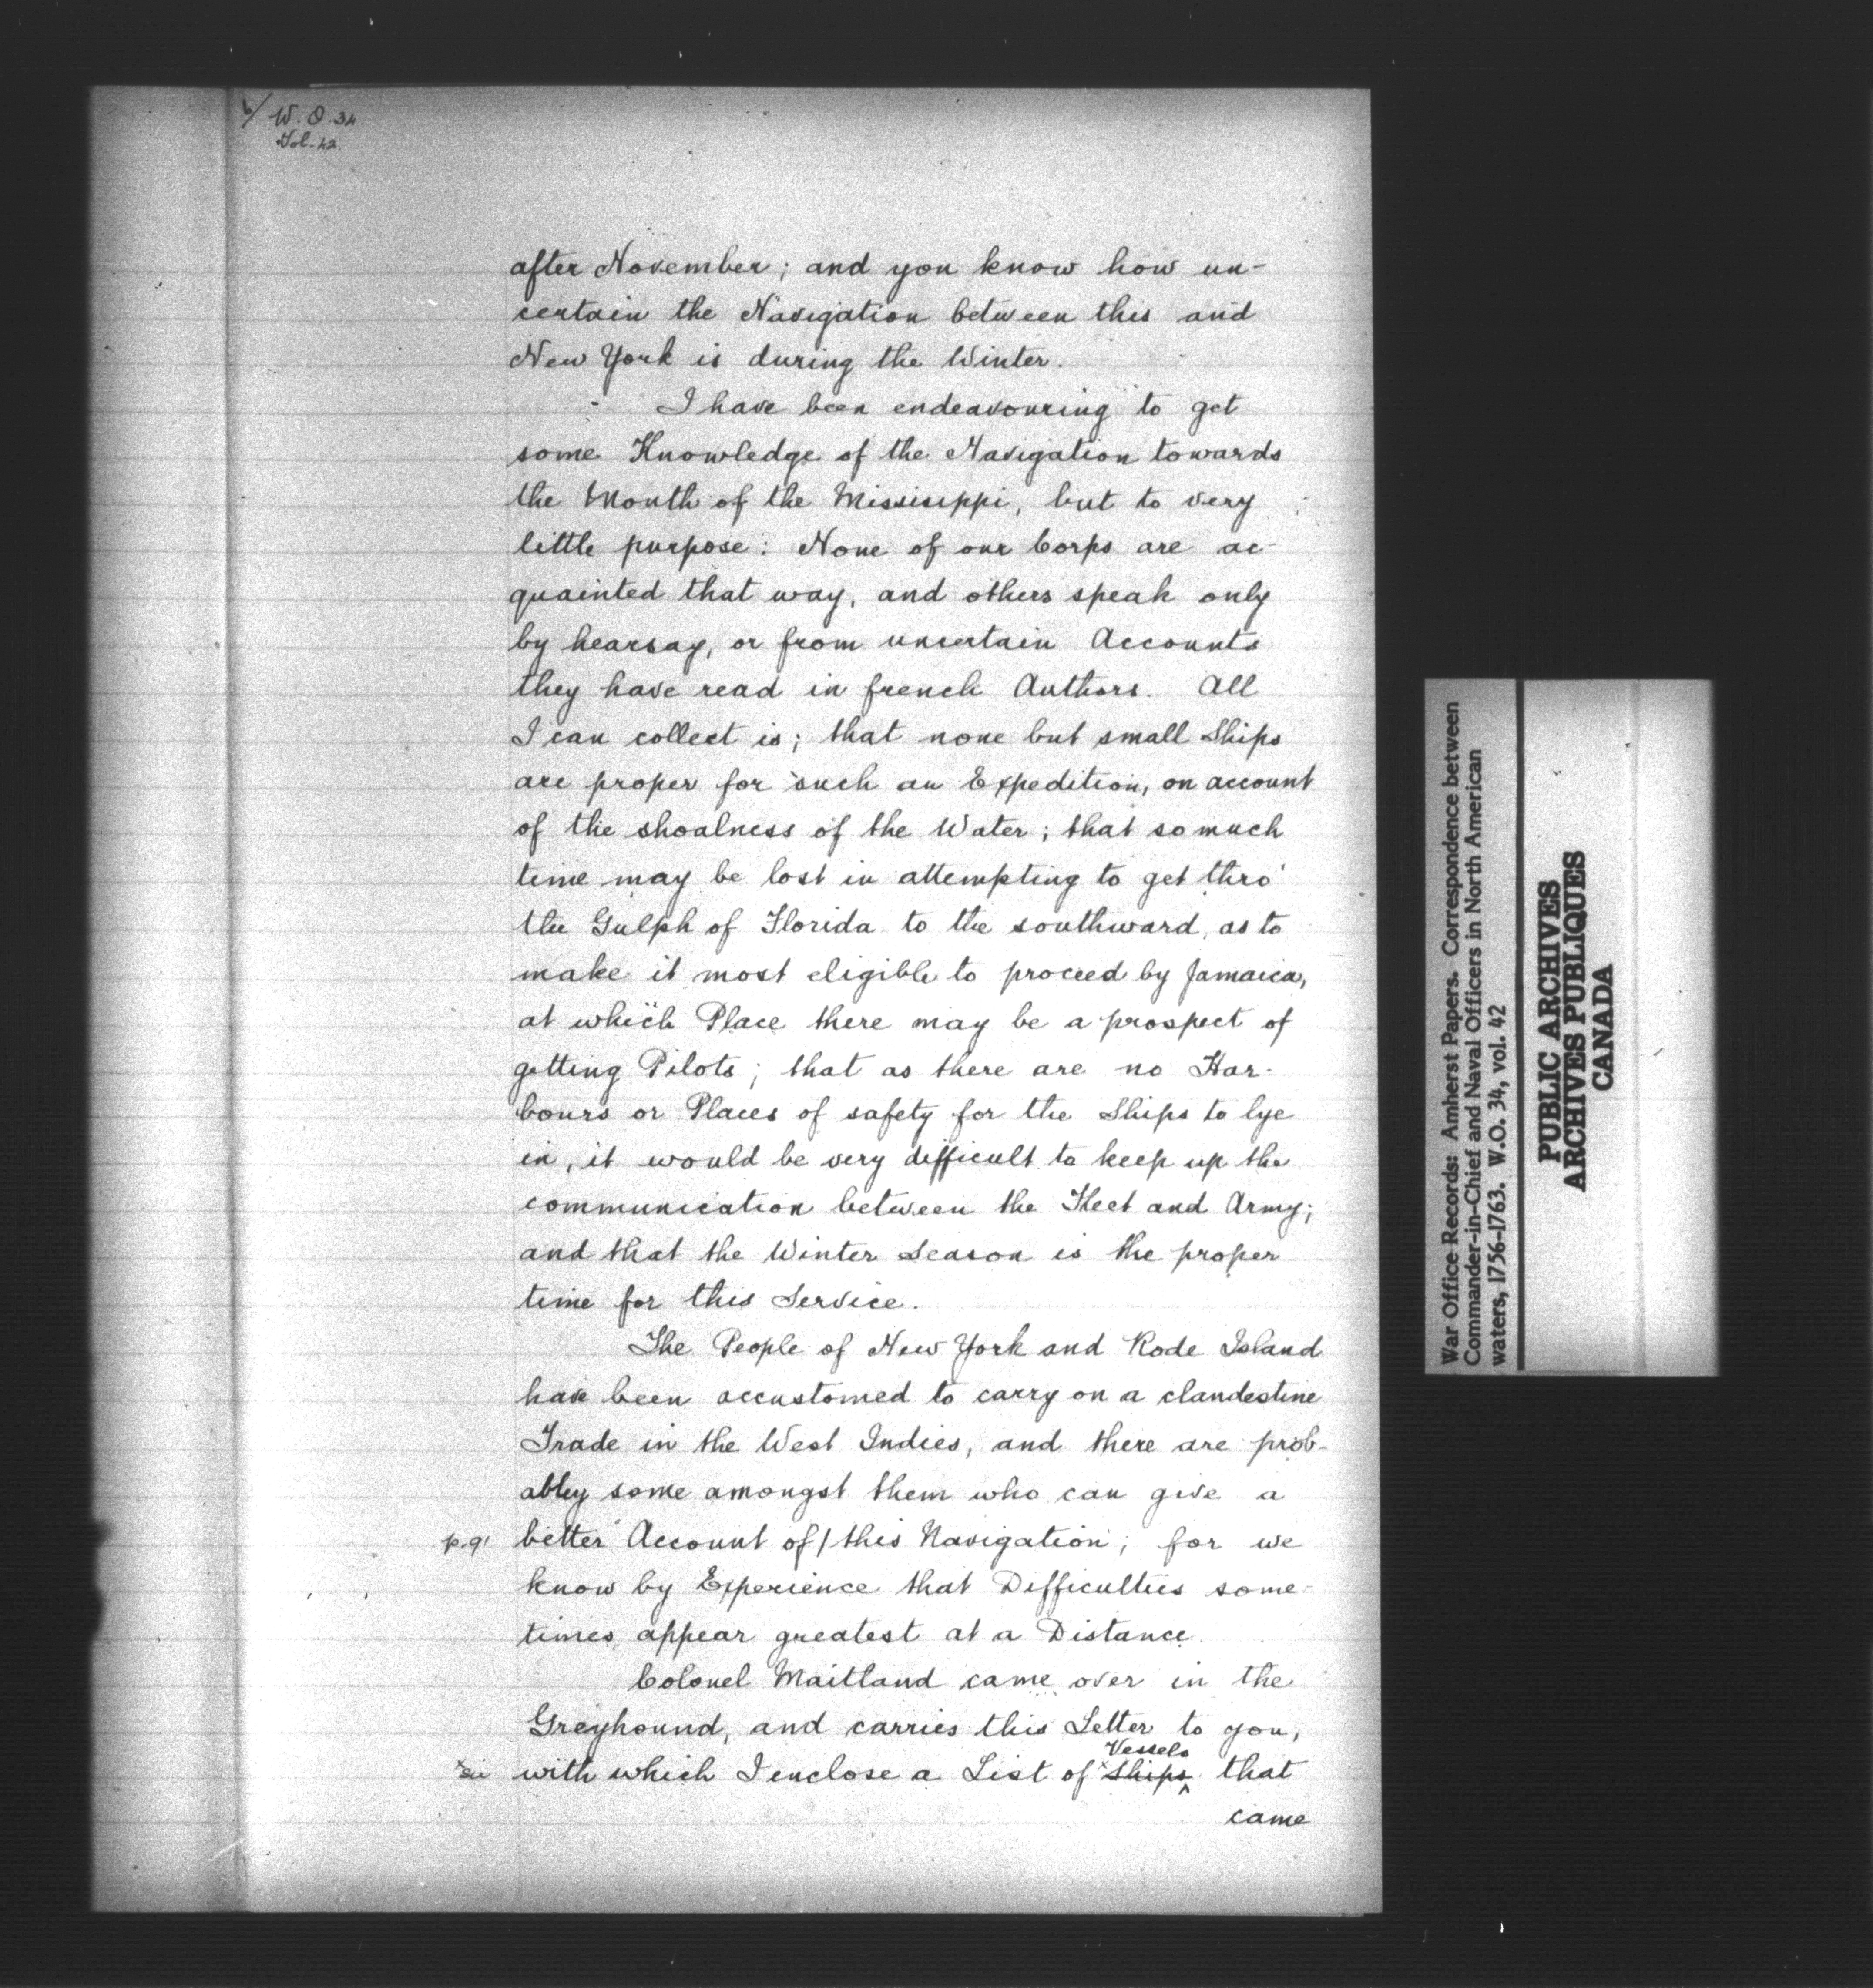 b/ W. O. 34
Vol. 42.
after November; and you know how un-
certain the Navigation between this and
New York is during the Winter.
I have been endeavouring to get
some Knowledge of the Navigation towards
the Mouth of the Missisippi, but to very
little purpose: None of our Corps are ac-
quainted that way, and others speak only
by hearsay, or from uncertain Accounts
they have read in french Authors. All
I can collect is; that none but small Ships
are proper for such an Expedition, on account
of the shoalness of the Water; that so much
time may be lost in attempting to get thro'
the Gulph of Florida to the southward, as to
make it most eligible to proceed by Jamaica,
at which Place there may be a prospect of
getting Pilots; that as there are no Har-
bours or Places of safety for the Ships to lye
in, it would be very difficult to keep up the
communication between the Fleet and Army;
and that the Winter Season is the proper
time for this Service.
The People of New York and Rode Island
have been accustomed to carry on a clandestine
Trade in the West Indies, and there are prob-
abley some amongst them who can give a
p.91 better Account of/this Navigation; for we
know by Experience that Difficulties some-
times appear greatest at a Distance.
Colonel Maitland came over in the
Greyhound, and carries this Letter to you,
Vessels
x sic with which I enclose a List of x Ships that
came
War Office Records: Amherst Papers. Correspondence between
Commander-in-Chief and Naval Officers in North American
waters, 1756-1763. W.O. 34, vol. 42
PUBLIC ARCHIVES
ARCHIVES PUBLIQUES
CANADA